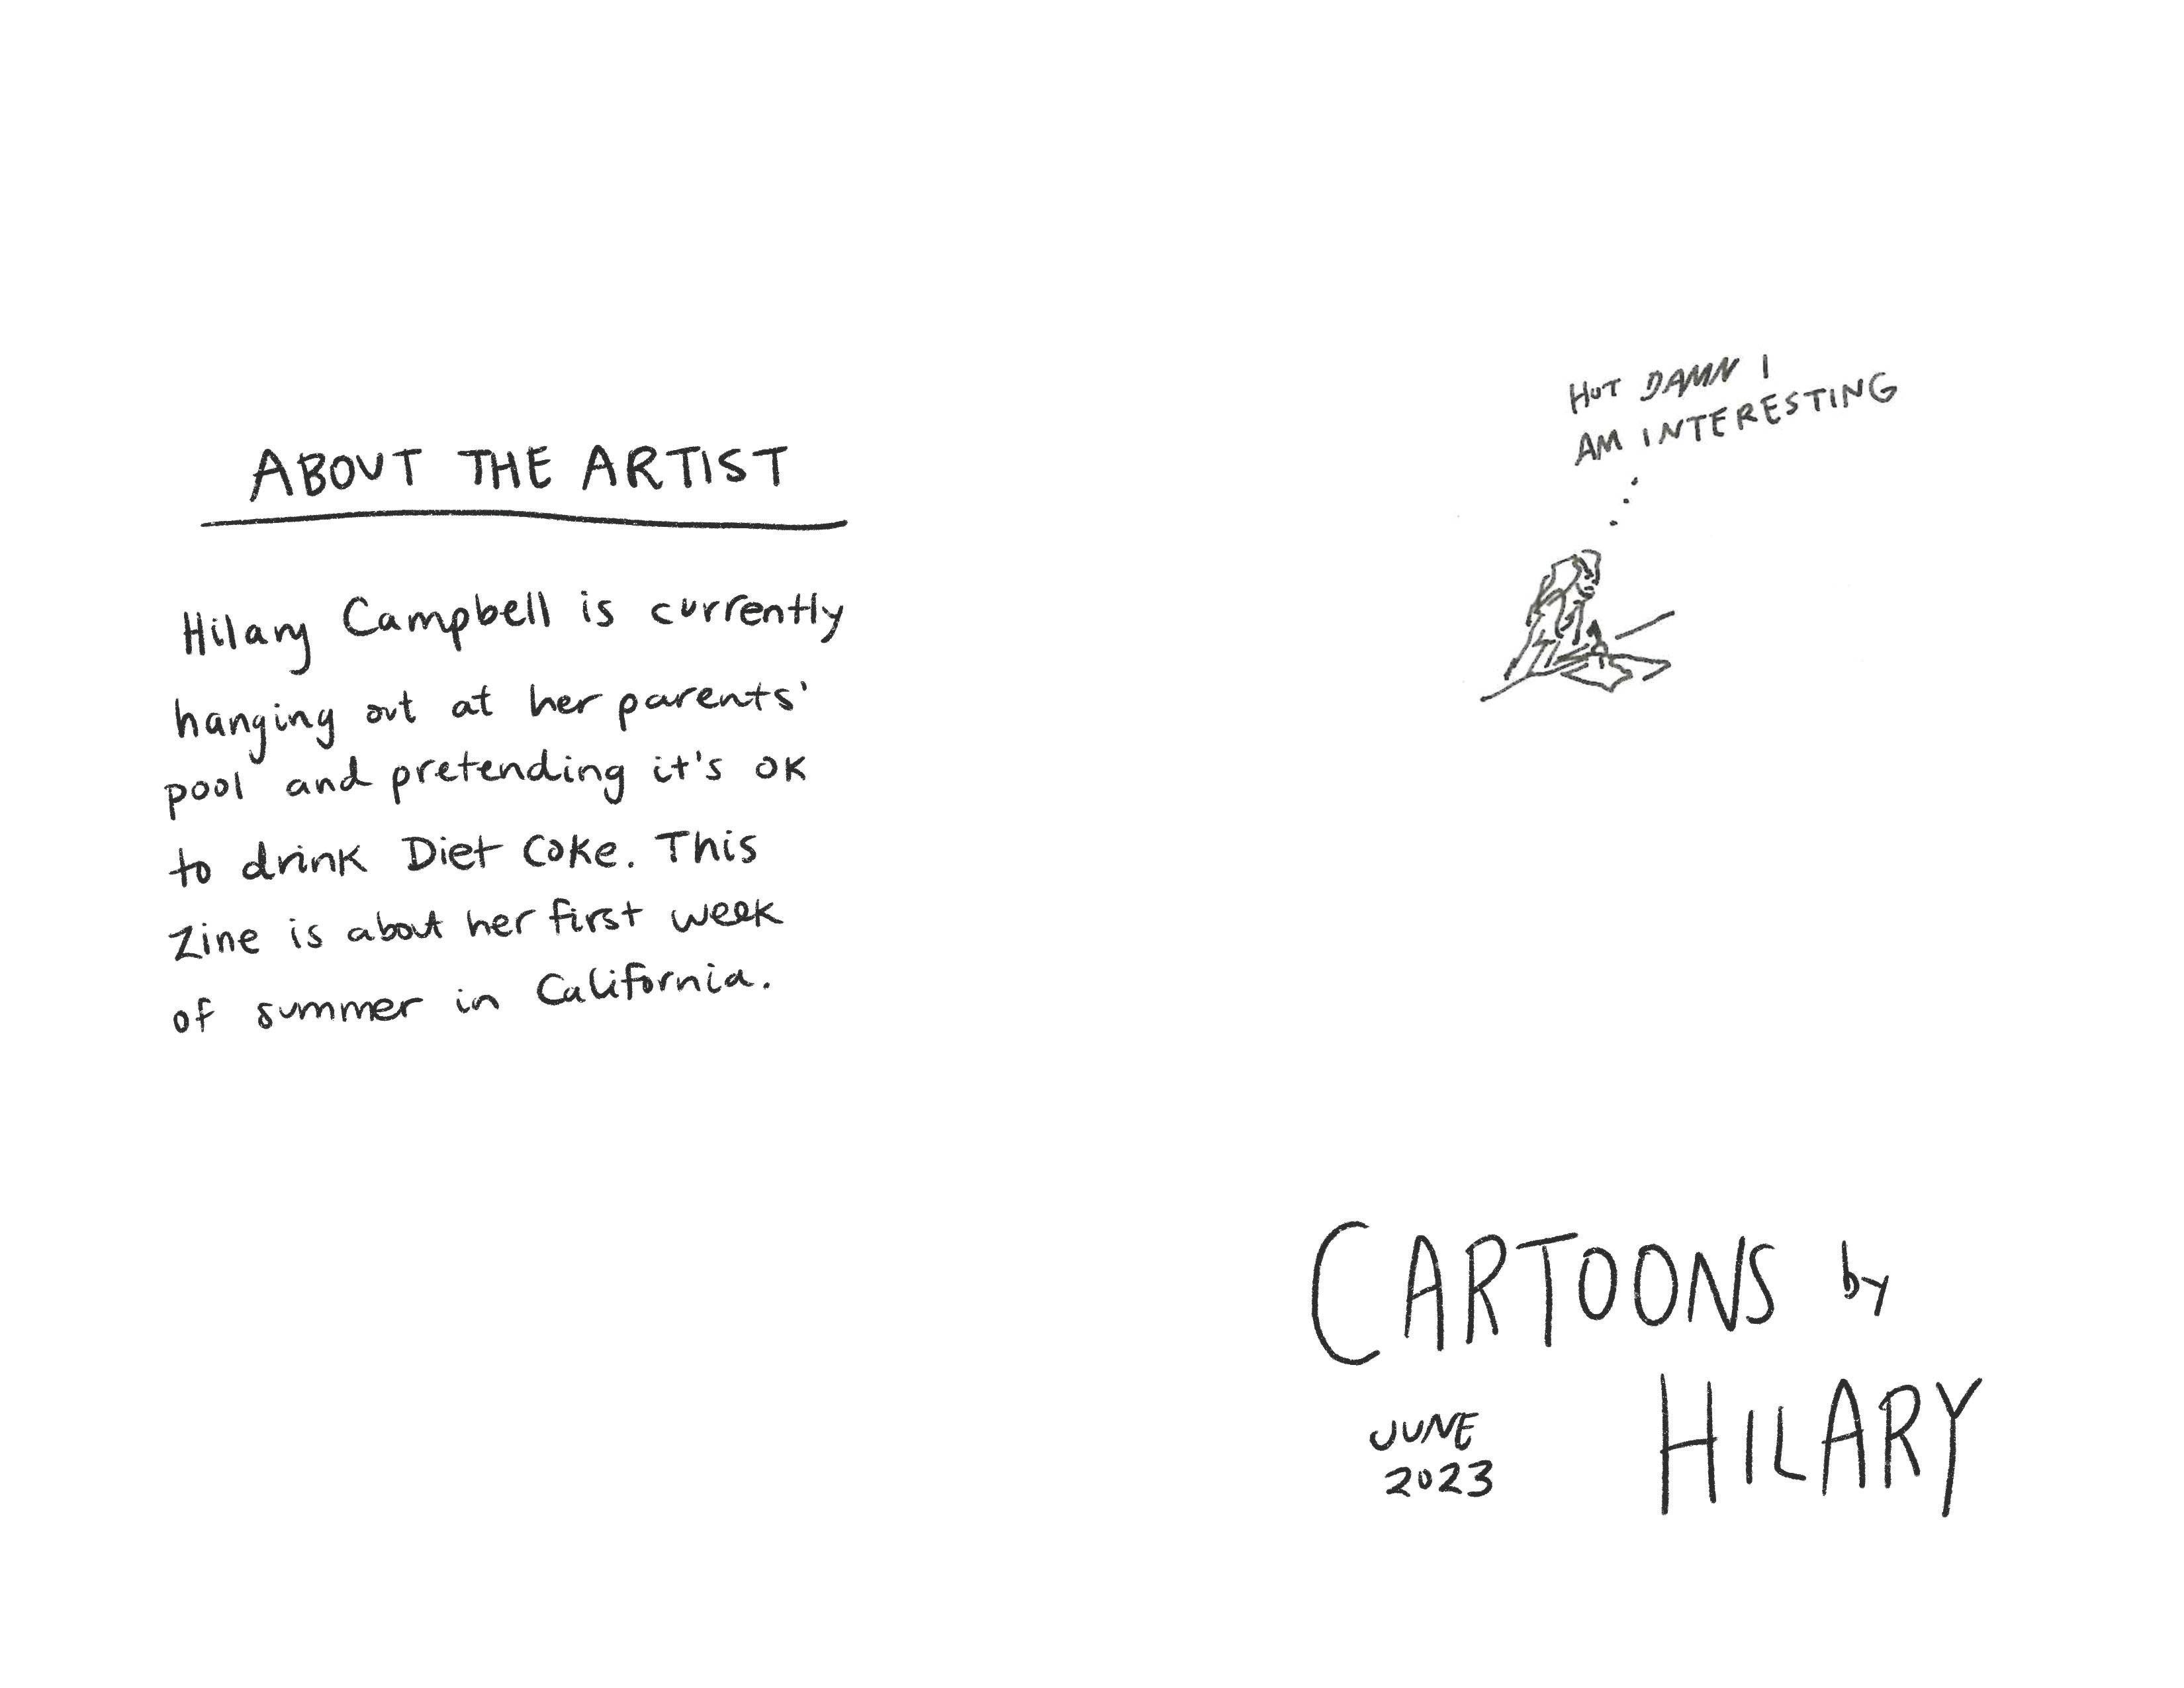 ABOUT THE ARTIST
Hilary Campbell is currently
hanging out at her parents'
pool and pretending it's OK
to drink Diet Coke. This
Zine is about her first week
of summer in California.
HOT DAMN I
AM INTERESTING
CARTOONS by
HILARY
JUNE
2023